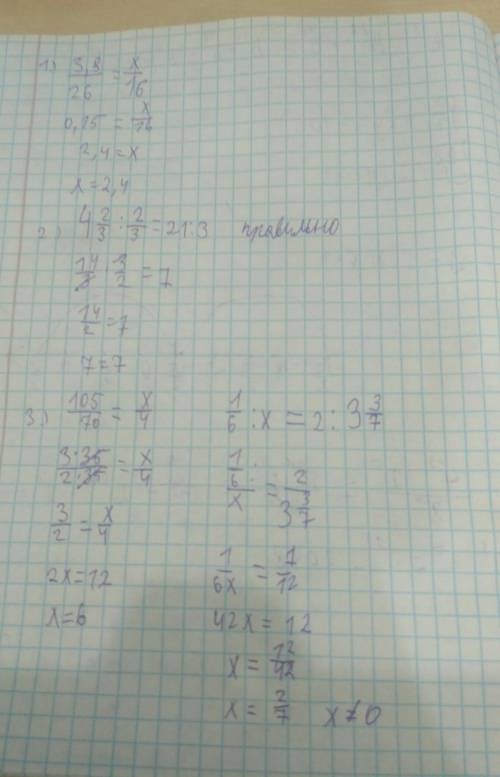 1) 3,8/26 = x/16
0,15 = x/16
2,4 = x
x = 2,4
2) 4 2/3 : 2/3 = 21:3 правильно
14/3 · 3/2 = 7
14/2 = 7
7 = 7
3) 105/70 = x/4
3·35/2·35 = x/4
3/2 = x/4
2x = 12
x = 6
1/6 : x = 2 : 3 3/7
1/6/x = 2/3 3/7
1/6x = 7/12
42x = 12
x = 12/42
x = 2/7 x ≠ 0